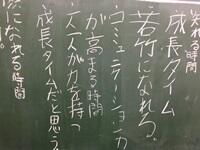 れる時間
成長タイム
若竹になれる、
コミュニケーション力
が高まる時間
一人一人が力を持つ
成長タイムだと思う
になれる時間